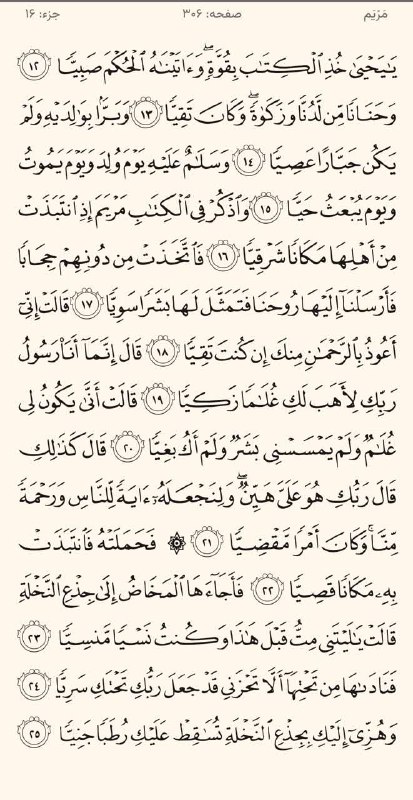 مَرْيَم صفحه: ۳۰۶ جزء: ۱۶
يَٰيَحْيَىٰ خُذِ ٱلْكِتَٰبَ بِقُوَّةٖۖ وَءَاتَيْنَٰهُ ٱلْحُكْمَ صَبِيّٗا ١٢
وَحَنَانٗا مِّن لَّدُنَّا وَزَكَوٰةٗۖ وَكَانَ تَقِيّٗا ١٣ وَبَرَّۢا بِوَٰلِدَيْهِ وَلَمْ
يَكُن جَبَّارًا عَصِيّٗا ١٤ وَسَلَٰمٌ عَلَيْهِ يَوْمَ وُلِدَ وَيَوْمَ يَمُوتُ
وَيَوْمَ يُبْعَثُ حَيّٗا ١٥ وَٱذْكُرْ فِي ٱلْكِتَٰبِ مَرْيَمَ إِذِ ٱنتَبَذَتْ
مِنْ أَهْلِهَا مَكَانٗا شَرْقِيّٗا ١٦ فَٱتَّخَذَتْ مِن دُونِهِمْ حِجَابٗا
فَأَرْسَلْنَآ إِلَيْهَا رُوحَنَا فَتَمَثَّلَ لَهَا بَشَرٗا سَوِيّٗا ١٧ قَالَتْ إِنِّيٓ
أَعُوذُ بِٱلرَّحْمَٰنِ مِنكَ إِن كُنتَ تَقِيّٗا ١٨ قَالَ إِنَّمَآ أَنَا۠ رَسُولُ
رَبِّكِ لِأَهَبَ لَكِ غُلَٰمٗا زَكِيّٗا ١٩ قَالَتْ أَنَّىٰ يَكُونُ لِي
غُلَٰمٞ وَلَمْ يَمْسَسْنِي بَشَرٞ وَلَمْ أَكُ بَغِيّٗا ٢٠ قَالَ كَذَٰلِكِ
قَالَ رَبُّكِ هُوَ عَلَيَّ هَيِّنٞۖ وَلِنَجْعَلَهُۥٓ ءَايَةٗ لِّلنَّاسِ وَرَحْمَةٗ
مِّنَّاۚ وَكَانَ أَمْرٗا مَّقْضِيّٗا ٢١ ۞ فَحَمَلَتْهُ فَٱنتَبَذَتْ
بِهِۦ مَكَانٗا قَصِيّٗا ٢٢ فَأَجَآءَهَا ٱلْمَخَاضُ إِلَىٰ جِذْعِ ٱلنَّخْلَةِ
قَالَتْ يَٰلَيْتَنِي مِتُّ قَبْلَ هَٰذَا وَكُنتُ نَسْيٗا مَّنسِيّٗا ٢٣
فَنَادَىٰهَا مِن تَحْتِهَآ أَلَّا تَحْزَنِي قَدْ جَعَلَ رَبُّكِ تَحْتَكِ سَرِيّٗا ٢٤
وَهُزِّيٓ إِلَيْكِ بِجِذْعِ ٱلنَّخْلَةِ تُسَٰقِطْ عَلَيْكِ رُطَبٗا جَنِيّٗا ٢٥